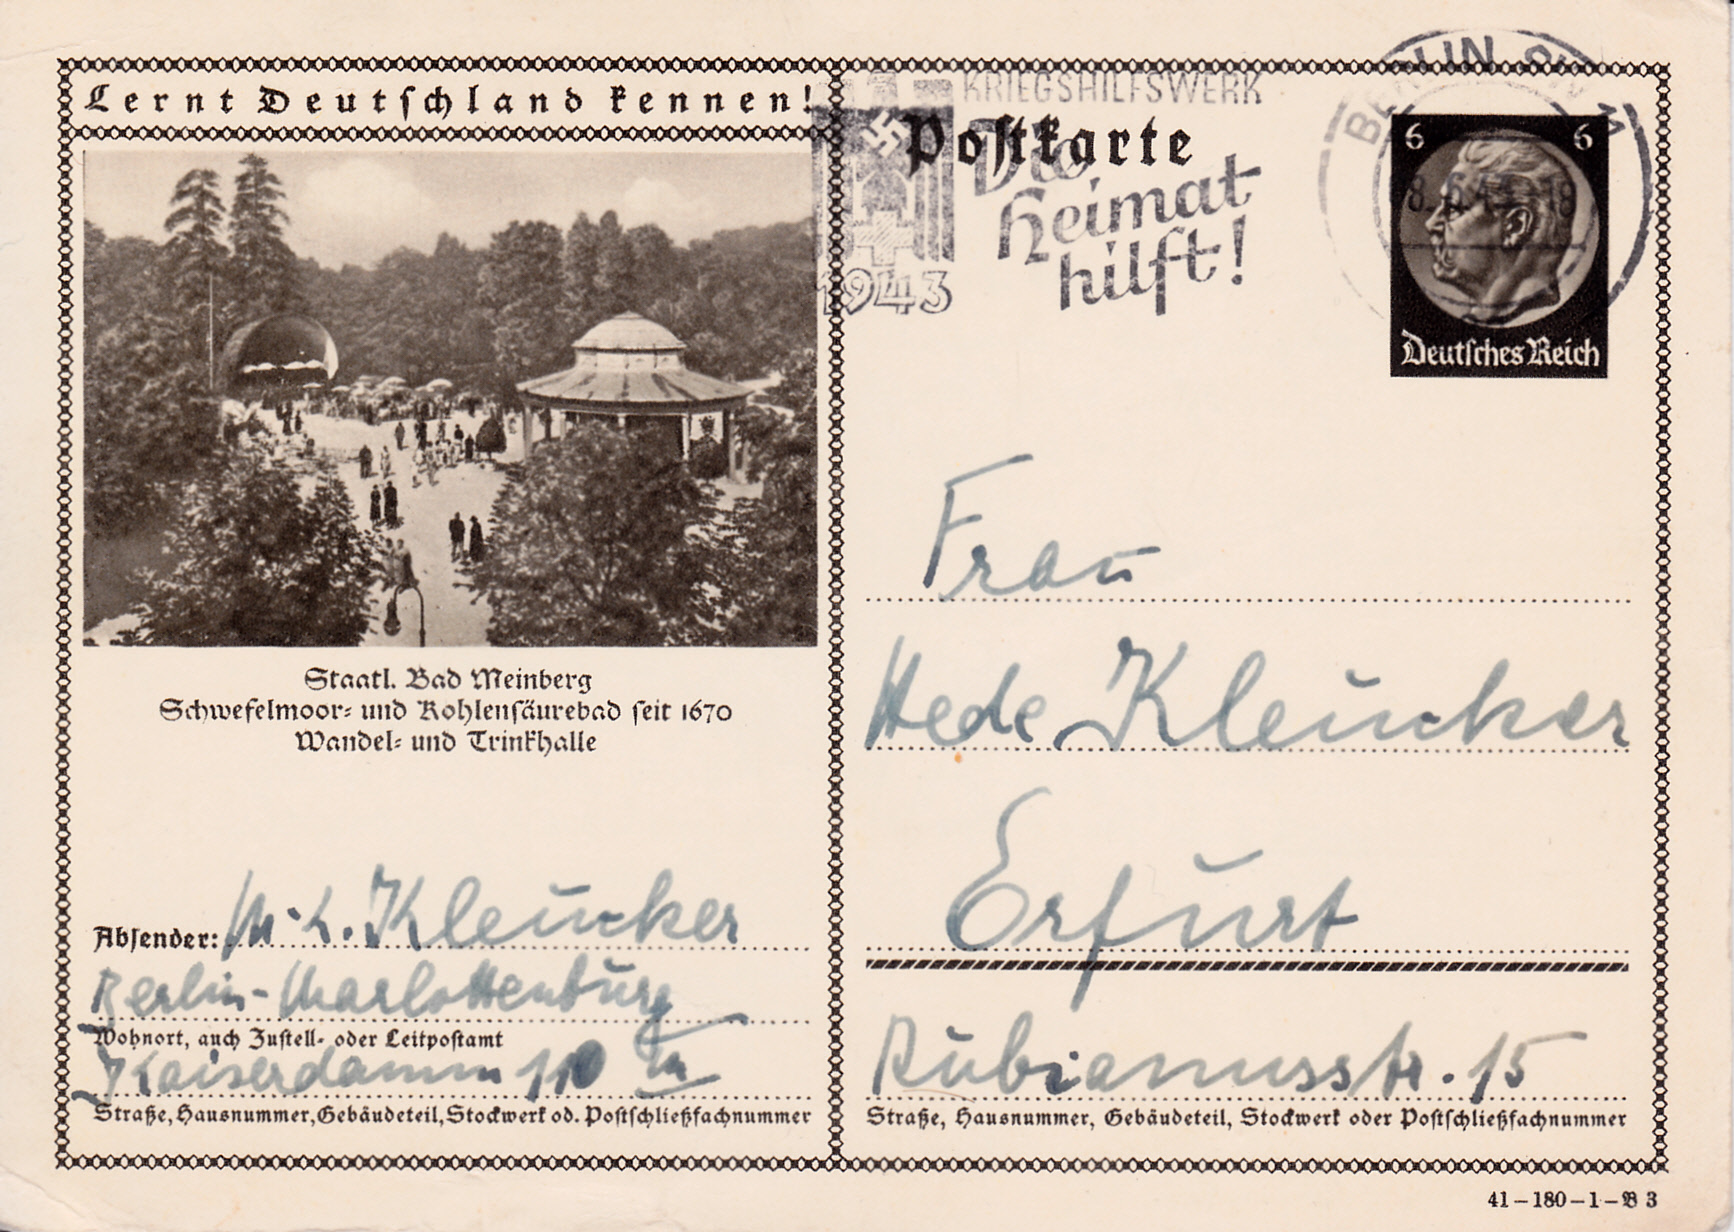 Lernt Deutschland kennen!
Staatl. Bad Meinberg
Schwefelmoor- und Kohlensäurebad seit 1670
Wandel- und Trinkhalle
Absender: M. L. Kleucker
Berlin-Charlottenburg
Wohnort, auch Zustell- oder Leitpostamt
Kaiserdamm 110
Straße, Hausnummer, Gebäudeteil, Stockwerk od. Postschließfachnummer
KRIEGSHILFSWERK
Postkarte
Die
Heimat
hilft!
1943
BERLIN SW 11
6 6
Deutsches Reich
Frau
Hede Kleucker
Erfurt
Rubianusstr. 15
Straße, Hausnummer, Gebäudeteil, Stockwerk oder Postschließfachnummer
41-180-1-B 3